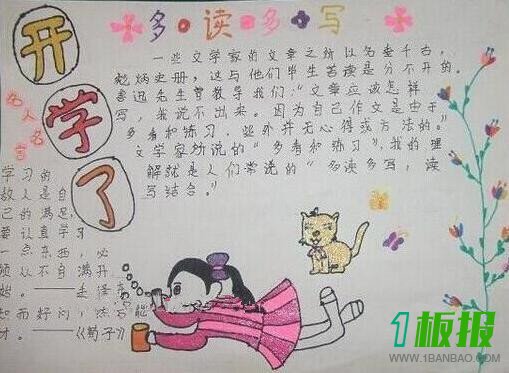 开
学
了
多·读·多·写
一些文学家的文章之所以名垂千古,
彪炳史册,这与他们毕生苦读是分不开的。
鲁迅先生曾教导我们:“文章应该怎样
写,我说不出来。因为自己作文是由于
多看和练习,此外并无心得或方法的。”
文学家所说的“多看和练习”,我的理
解就是人们常说的“多读多写,读
写结合。”
名人名
言
学习的
敌人是自
己的满足,
要认真学习
一点东西,必
须从不自满开
始。——毛泽东
知而好问,然后能
才。——《荀子》
1板报
WWW.1BANBAO.COM